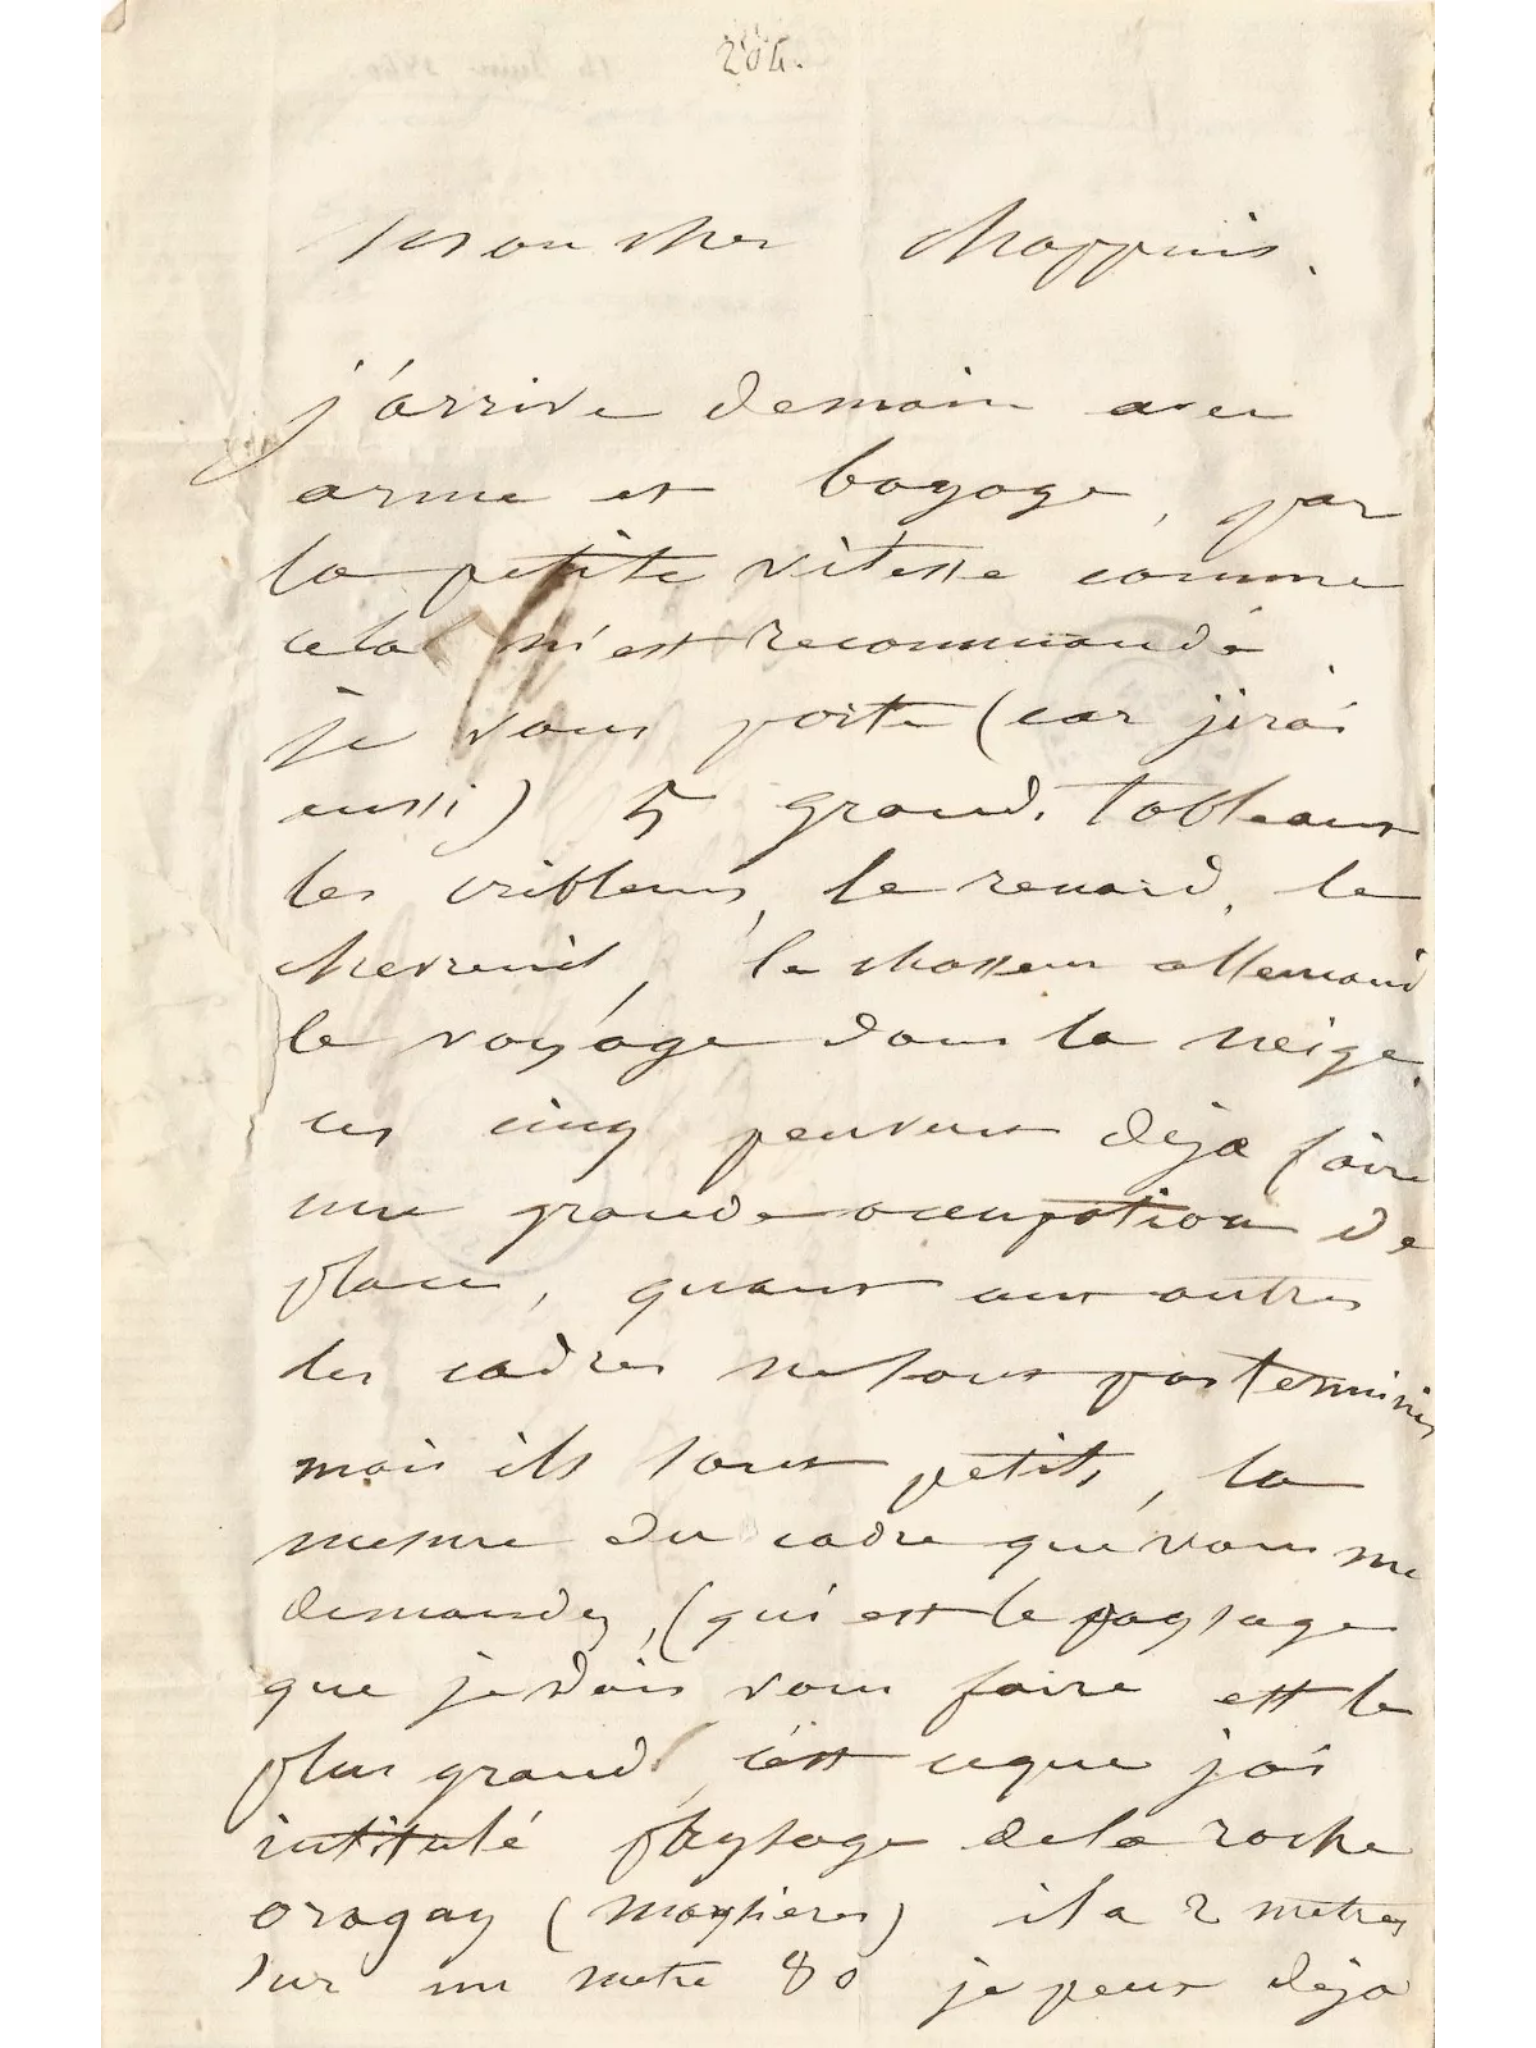 204.
Mon cher Chappuis.
j'arrive demain avec
arme et bagage, par
la petite vitesse comme
cela m'est recommandé.
je vous porte (car j'irai
aussi) 5 grands tableaux
les cribleuses, le renard, le
chevreuil, le chasseur allemand
le voyage dans la neige.
ces cinq peuvent déja faire
une grande occupation de
place, quant aux autres
les cadres ne sont pas terminés
mais ils sont petits, la
mesure du cadre que vous me
demandez, (qui est le paysage
que je dois vous faire est le
plus grand, c'est ceque j'ai
intitulé paysage dela roche
oragay (mayzieres) il a 2 metres
sur un metre 80 je peux déja